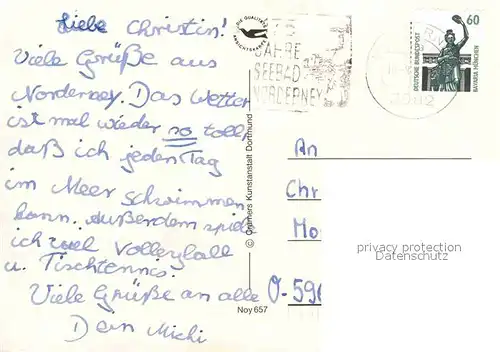 Liebe Christin!
Viele Grüße aus
Norderney. Das Wetter
ist mal wieder so toll,
daß ich jeden Tag
im Meer schwimmen
kann. Außerdem spiele
ich viel Volleyball
u. Tischtennis.
Viele Grüße an alle
Dein Michi
DIE QUALITÄTS
ANSICHTSKARTE
JAHRE
SEEBAD
NORDERNEY
60
DEUTSCHE BUNDESPOST
BAVARIA MÜNCHEN
© Cramers Kunstanstalt Dortmund
Noy 657
An
Chr
Mo
O-596
privacy protection
Datenschutz